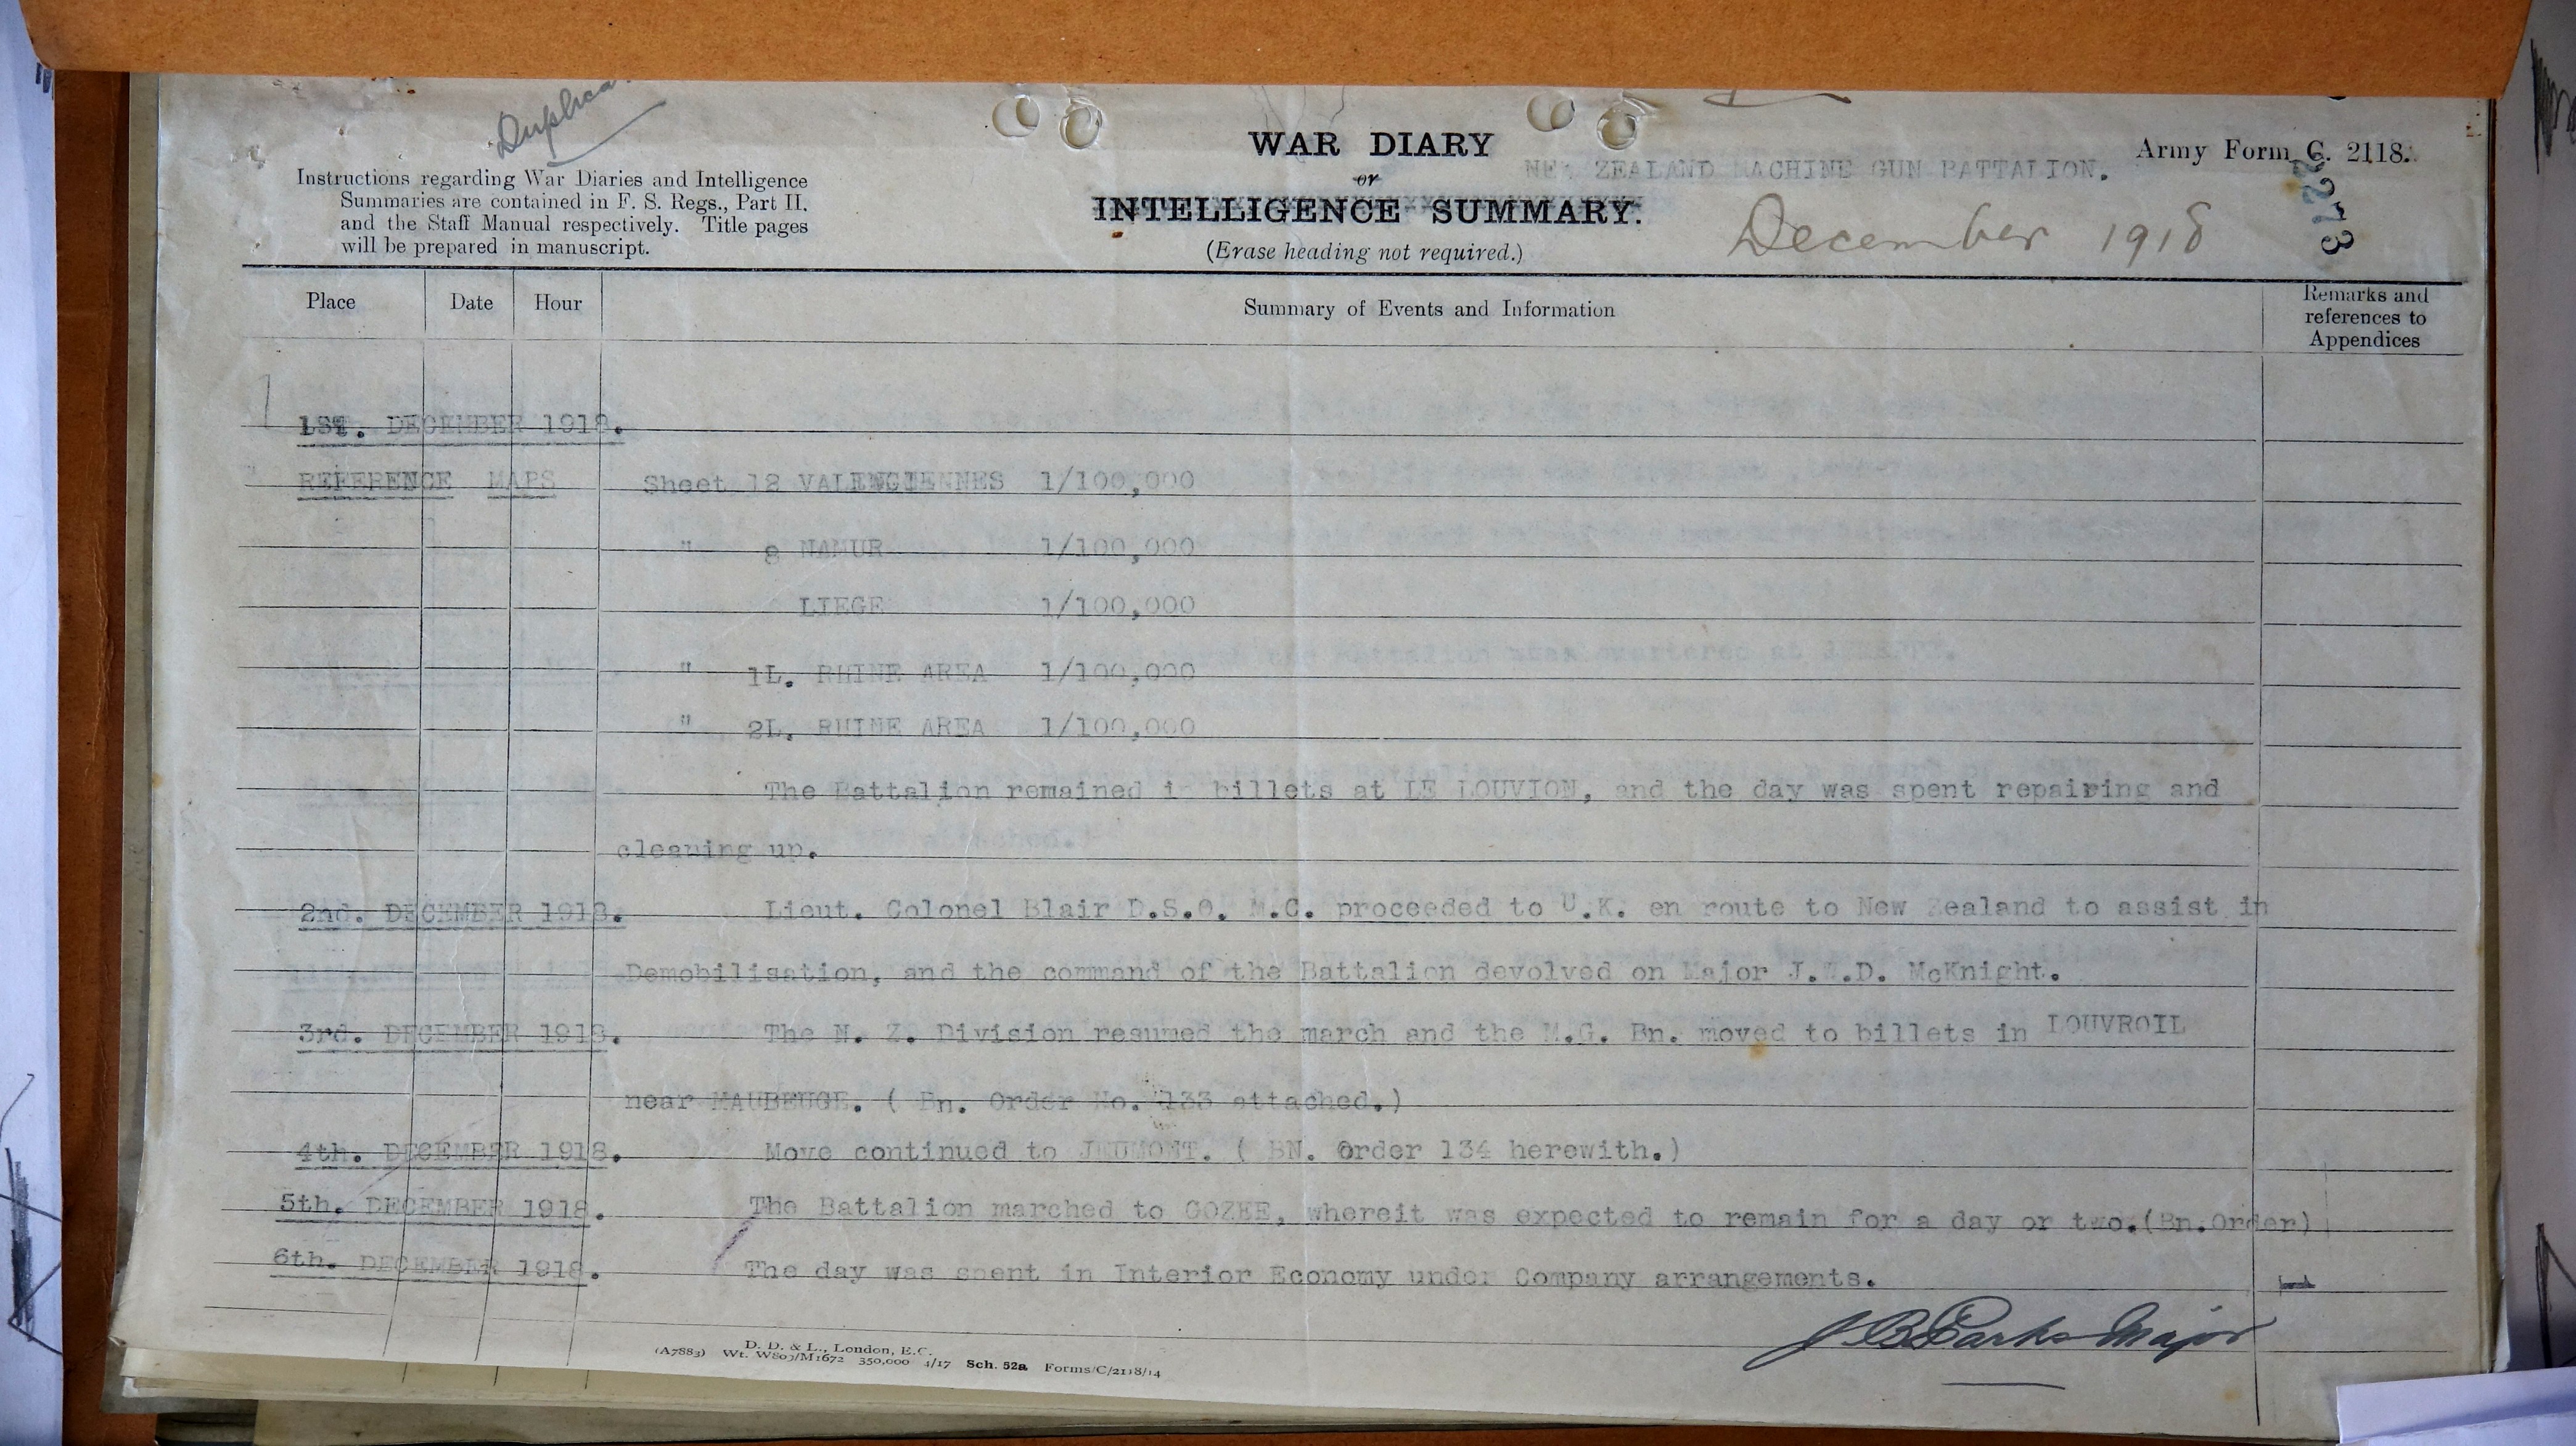 WAR DIARY
or
INTELLIGENCE SUMMARY.
(Erase heading not required.)
NEW ZEALAND MACHINE GUN BATTALION.
Army Form C. 2118.
December 1918
Instructions regarding War Diaries and Intelligence
Summaries are contained in F. S. Regs., Part II.
and the Staff Manual respectively. Title pages
will be prepared in manuscript.
Place Date Hour Summary of Events and Information Remarks and
references to
Appendices
1ST. DECEMBER 1918.
REFERENCE MAPS Sheet 12 VALENCIENNES 1/100,000
" 8 NAMUR 1/100,000
LIEGE 1/100,000
" 1L. RHINE AREA 1/100,000
" 2L. RHINE AREA 1/100,000
The Battalion remained in billets at LE LOUVION, and the day was spent repairing and
cleaning up.
2nd. DECEMBER 1918. Lieut. Colonel Blair D.S.O. M.C. proceeded to U.K. en route to New Zealand to assist in
Demobilisation, and the command of the Battalion devolved on Major McKnight.
3rd. DECEMBER 1918. The N. Z. Division resumed the march and the M.G. Bn. moved to billets in LOUVROIL
near MAUBEUGE. ( Bn. Order No. 133 attached.)
4th. DECEMBER 1918. Move continued to JEUMONT. ( BN. Order 134 herewith.)
5th. DECEMBER 1918. The Battalion marched to GOZEE, whereit was expected to remain for a day or two.(Bn.Order)
6th. DECEMBER 1918. The day was spent in Interior Economy under Company arrangements.
1
J B Parks Major
D. D. & L., London, E.C.
(A7883) Wt. W809/M1672 350,000 4/17 Sch. 52a Forms/C/2118/14